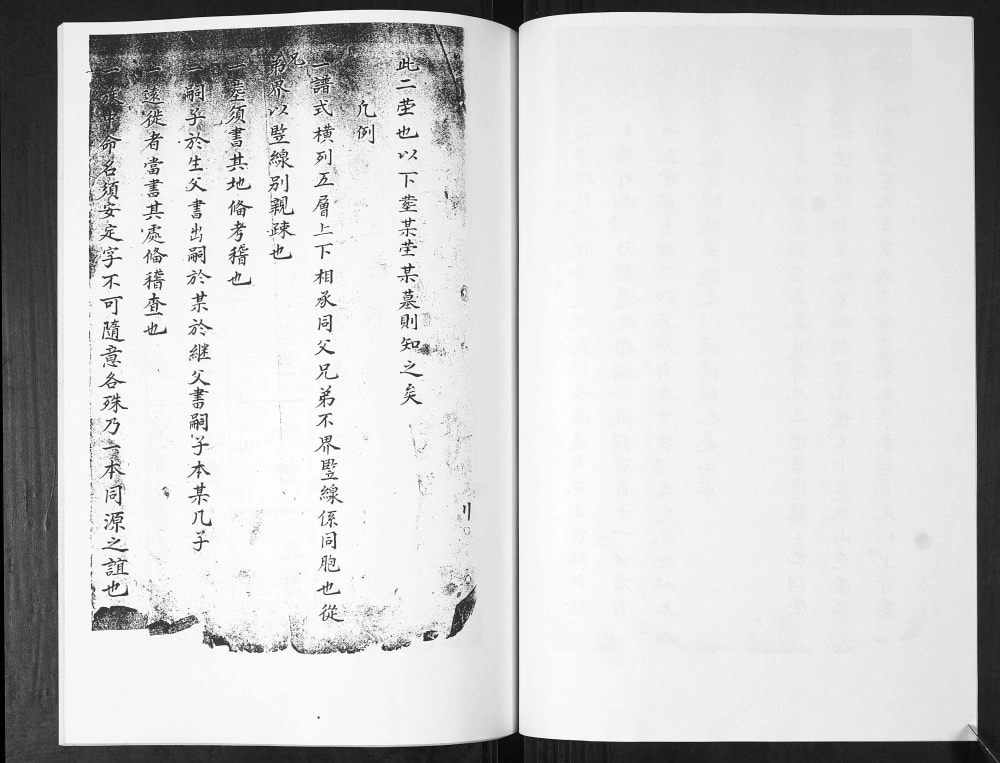 此二茔也以下葬某茔某墓則知之矣
凡例
一譜式橫列五層上下相承同父兄弟不界竪線係同胞也從
兄弟界以竪線别親疎也
一塟須書其地俻考稽也
一嗣子於生父書出嗣於某於継父書嗣子本某几子
一遠徙者當書其處俻稽查也
一族中命名須安定字不可隨意各殊乃一本同源之誼也